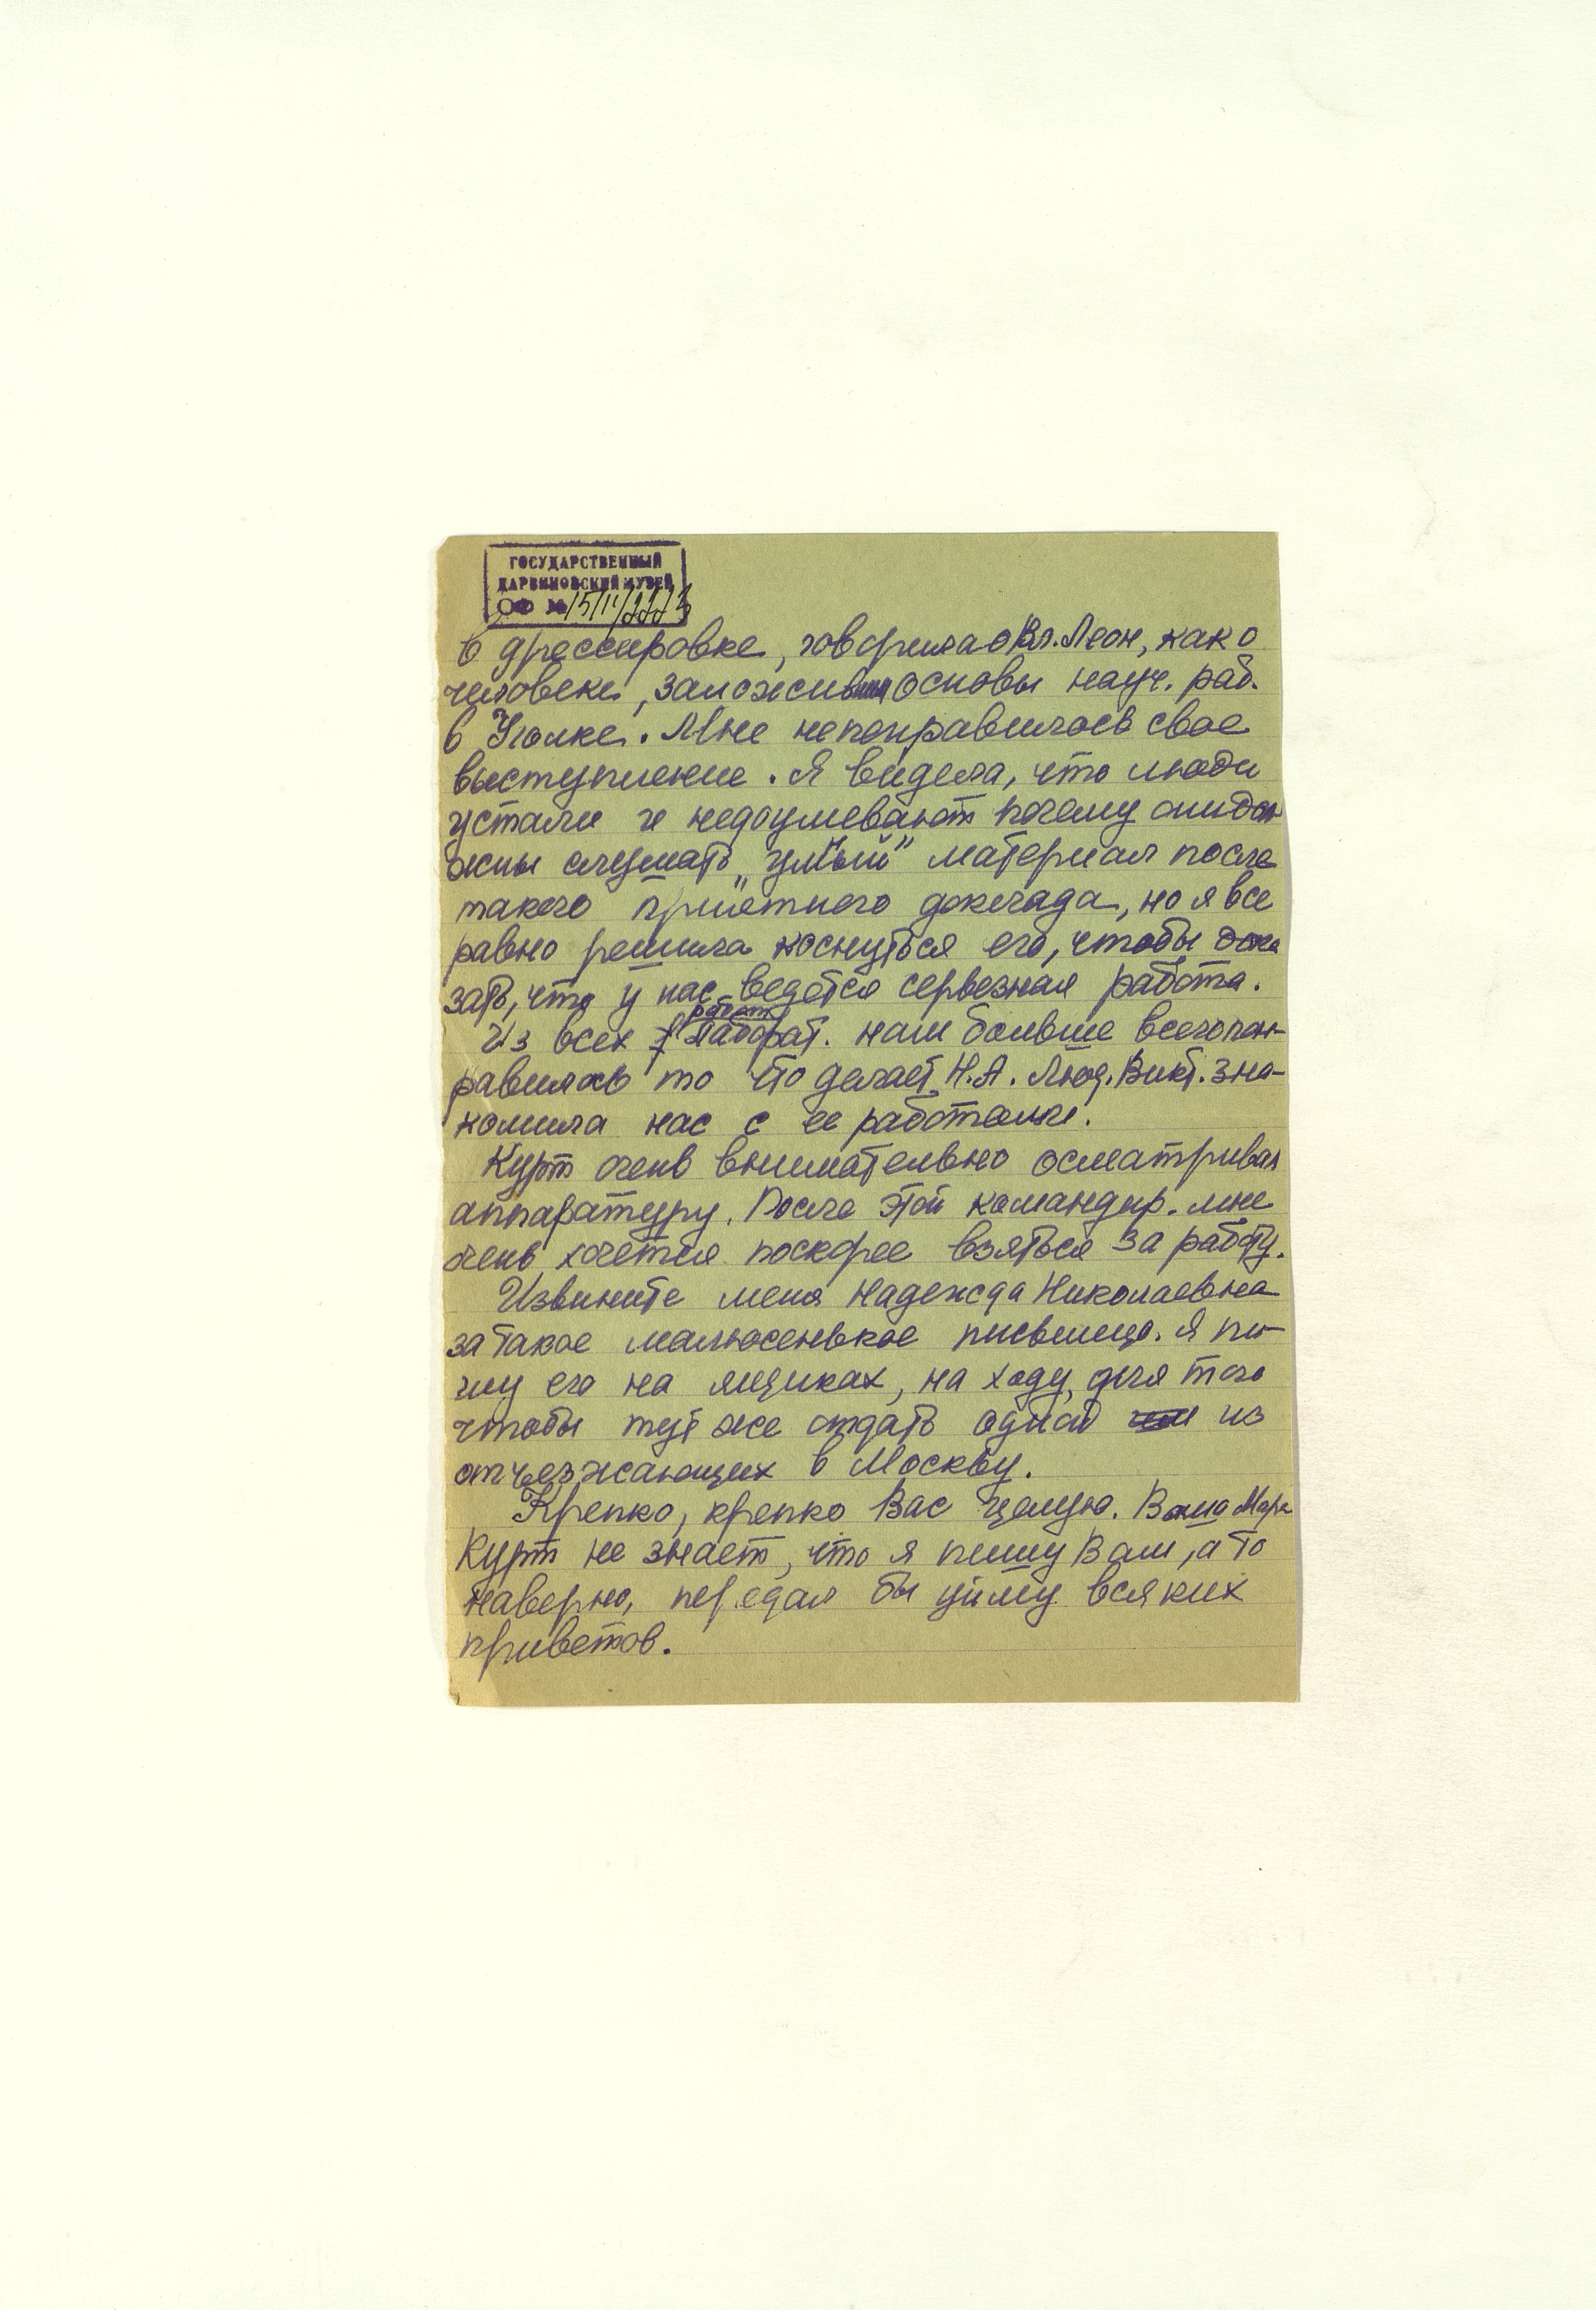 ГОСУДАРСТВЕННЫЙ
ДАРВИНОВСКИЙ МУЗЕЙ
ОФ №
в дрессировке, говорила о Вл. Леон, как о
человеке, заложившем основы науч. раб.
в Уголке. Мне непонравилось свое
выступление. Я видела, что люди
устали и недоумевают почему они дол
жны слушать „ умный" материал после
такого приятного доклада, но я все
равно решила коснуться его, чтобы дока
зать, что у нас ведётся сервезная работа.
Из всех работ лаборат. нам больше всего пон-
равилось то что делает Н.А. Люд. Викт. зна-
комила нас с ее работами.
Курт очень внимательно осматривал
аппаратуру. После этой командир. мне
очень хочется поскорее взяться за работу.
Извините меня Надежда Николаевна
за такое малюсенькое письмецо. Я пи-
шу его на ящиках, на ходу, для того
чтобы тут же отдать одной из
отъезжающих в Москву.
Крепко, крепко Вас целую. Ваша Мара
Курт не знает, что я пишу Вам, а то
наверно, передал бы уйму всяких
приветов.